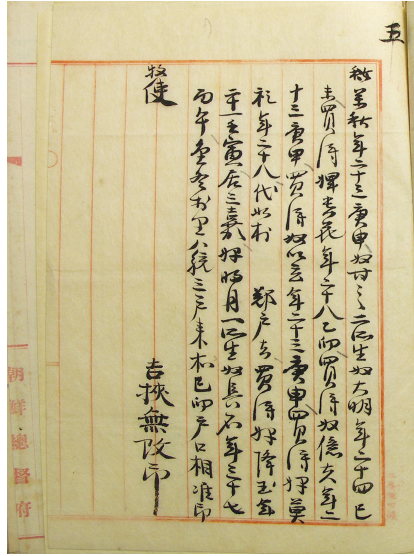 五
萬秋年二十三庚申奴 二所生奴大明年二十四己
未買得婢春花年二十八乙卯買得奴億夫年二
十三庚申買得奴以云年二十三庚申買得婢莫
年二十八代如村 鄭戶 買得婢降玉年
二十一壬寅居三嘉婢時月一所生奴長石年三十七
丙午 里八統三戶 己卯戶口相准印
牧使
挾無改印
朝鮮總督府